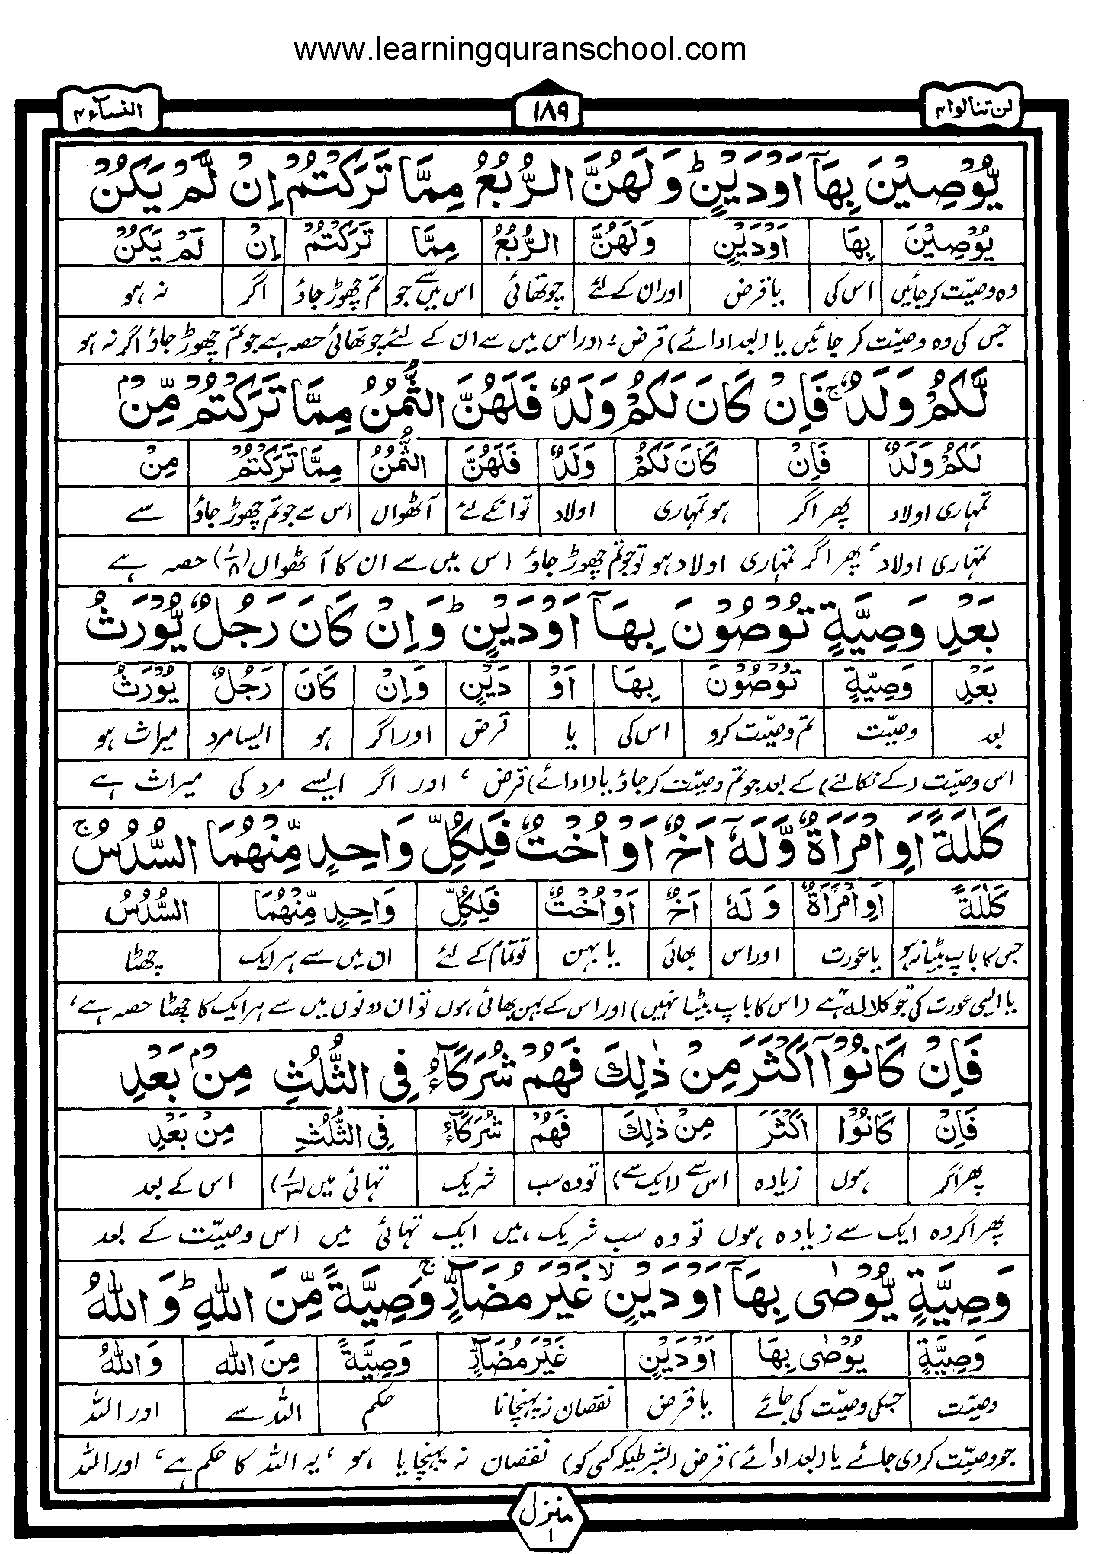 www.learningquranschool.com
لن تنالوا ۴ ۱۸۹ النساء ۴
يُّوْصِيْنَ بِهَآ اَوْ دَيْنٍ ؕ وَ لَهُنَّ الرُّبُعُ مِمَّا تَرَكْتُمْ اِنْ لَّمْ يَكُنْ
يُوْصِيْنَ بِهَا اَوْ دَيْنٍ وَ لَهُنَّ الرُّبُعُ مِمَّا تَرَكْتُمْ اِنْ لَمْ يَكُنْ
وہ وصیّت کر جائیں اس کی یا قرض اور ان کے لئے چوتھائی اس میں سے جو تم چھوڑ جاؤ اگر نہ ہو
جس کی وہ وصیّت کر جائیں یا (بعد ادائے) قرض، اور اس میں سے ان کے لئے چوتھائی حصہ ہے جو تم چھوڑ جاؤ اگر نہ ہو
لَّكُمْ وَلَدٌ ۚ فَاِنْ كَانَ لَكُمْ وَلَدٌ فَلَهُنَّ الثُّمُنُ مِمَّا تَرَكْتُمْ مِّنْۢ
لَكُمْ وَلَدٌ فَاِنْ كَانَ لَكُمْ وَلَدٌ فَلَهُنَّ الثُّمُنُ مِمَّا تَرَكْتُمْ مِنْ
تمہاری اولاد پھر اگر ہو تمہاری اولاد تو انکے لئے آٹھواں اس سے جو تم چھوڑ جاؤ سے
تمہاری اولاد، پھر اگر تمہاری اولاد ہو تو جو تم چھوڑ جاؤ اس میں سے ان کا آٹھواں (۱/۸) حصہ ہے
بَعْدِ وَصِيَّةٍ تُوْصُوْنَ بِهَآ اَوْ دَيْنٍ ؕ وَ اِنْ كَانَ رَجُلٌ يُّوْرَثُ
بَعْدِ وَصِيَّةٍ تُوْصُوْنَ بِهَا اَوْ دَيْنٍ وَ اِنْ كَانَ رَجُلٌ يُوْرَثُ
بعد وصیّت تم وصیّت کرو اس کی یا قرض اور اگر ہو ایسا مرد میراث ہو
اس وصیّت (کے نکالنے) کے بعد جو تم وصیّت کر جاؤ یا (ادائے) قرض، اور اگر ایسے مرد کی میراث ہے
كَلٰلَةً اَوِ امْرَاَةٌ وَّ لَهٗۤ اَخٌ اَوْ اُخْتٌ فَلِكُلِّ وَاحِدٍ مِّنْهُمَا السُّدُسُ ۚ
كَلٰلَةً اَوِ امْرَاَةٌ وَ لَهٗ اَخٌ اَوْ اُخْتٌ فَلِكُلِّ وَاحِدٍ مِّنْهُمَا السُّدُسُ
جس کا باپ بیٹا نہ ہو یا عورت اور اس بھائی یا بہن تو تمام کے لئے ان میں سے ہر ایک چھٹا
یا ایسی عورت کی جو کلالہ ہے (اس کا باپ بیٹا نہیں) اور اس کے بہن بھائی ہوں تو ان دونوں میں سے ہر ایک کا چھٹا حصہ ہے،
فَاِنْ كَانُوْۤا اَكْثَرَ مِنْ ذٰلِكَ فَهُمْ شُرَكَآءُ فِي الثُّلُثِ مِنْۢ بَعْدِ
فَاِنْ كَانُوْا اَكْثَرَ مِنْ ذٰلِكَ فَهُمْ شُرَكَآءُ فِي الثُّلُثِ مِنْ بَعْدِ
پھر اگر ہوں زیادہ اس سے (ایک سے) تو وہ سب شریک تہائی میں (۱/۳) اس کے بعد
پھر اگر وہ ایک سے زیادہ ہوں تو وہ سب شریک ہیں ایک تہائی میں اس وصیّت کے بعد
وَصِيَّةٍ يُّوْصٰى بِهَآ اَوْ دَيْنٍ ۙ غَيْرَ مُضَآرٍّ ۚ وَصِيَّةً مِّنَ اللّٰهِ ؕ وَ اللّٰهُ
وَصِيَّةٍ يُوْصٰى بِهَا اَوْ دَيْنٍ غَيْرَ مُضَآرٍّ وَصِيَّةً مِنَ اللّٰهِ وَ اللّٰهُ
وصیّت جسکی وصیّت کی جائے یا قرض نقصان نہ پہنچانا حکم اللہ سے اور اللہ
جو وصیّت کر دی جائے یا (بعد ادائے) قرض (بشرطیکہ کسی کو) نقصان نہ پہنچایا ہو، یہ اللہ کا حکم ہے، اور اللہ
منزل ۱